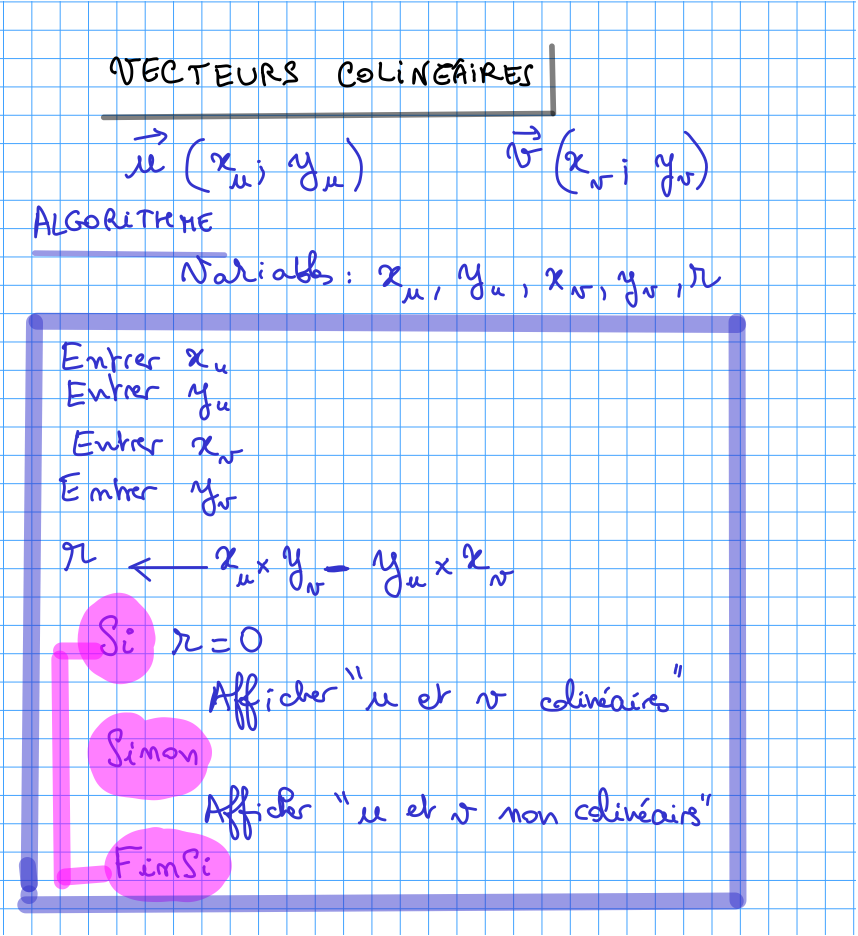 VECTEURS COLINÉAIRES
u⃗ (x_u ; y_u) v⃗ (x_v ; y_v)
ALGORITHME
Variables : x_u, y_u, x_v, y_v, r
Entrer x_u
Entrer y_u
Entrer x_v
Entrer y_v
r ← x_u × y_v - y_u × x_v
Si r = 0
Afficher "u et v colinéaires"
Sinon
Afficher "u et v non colinéairs"
FinSi